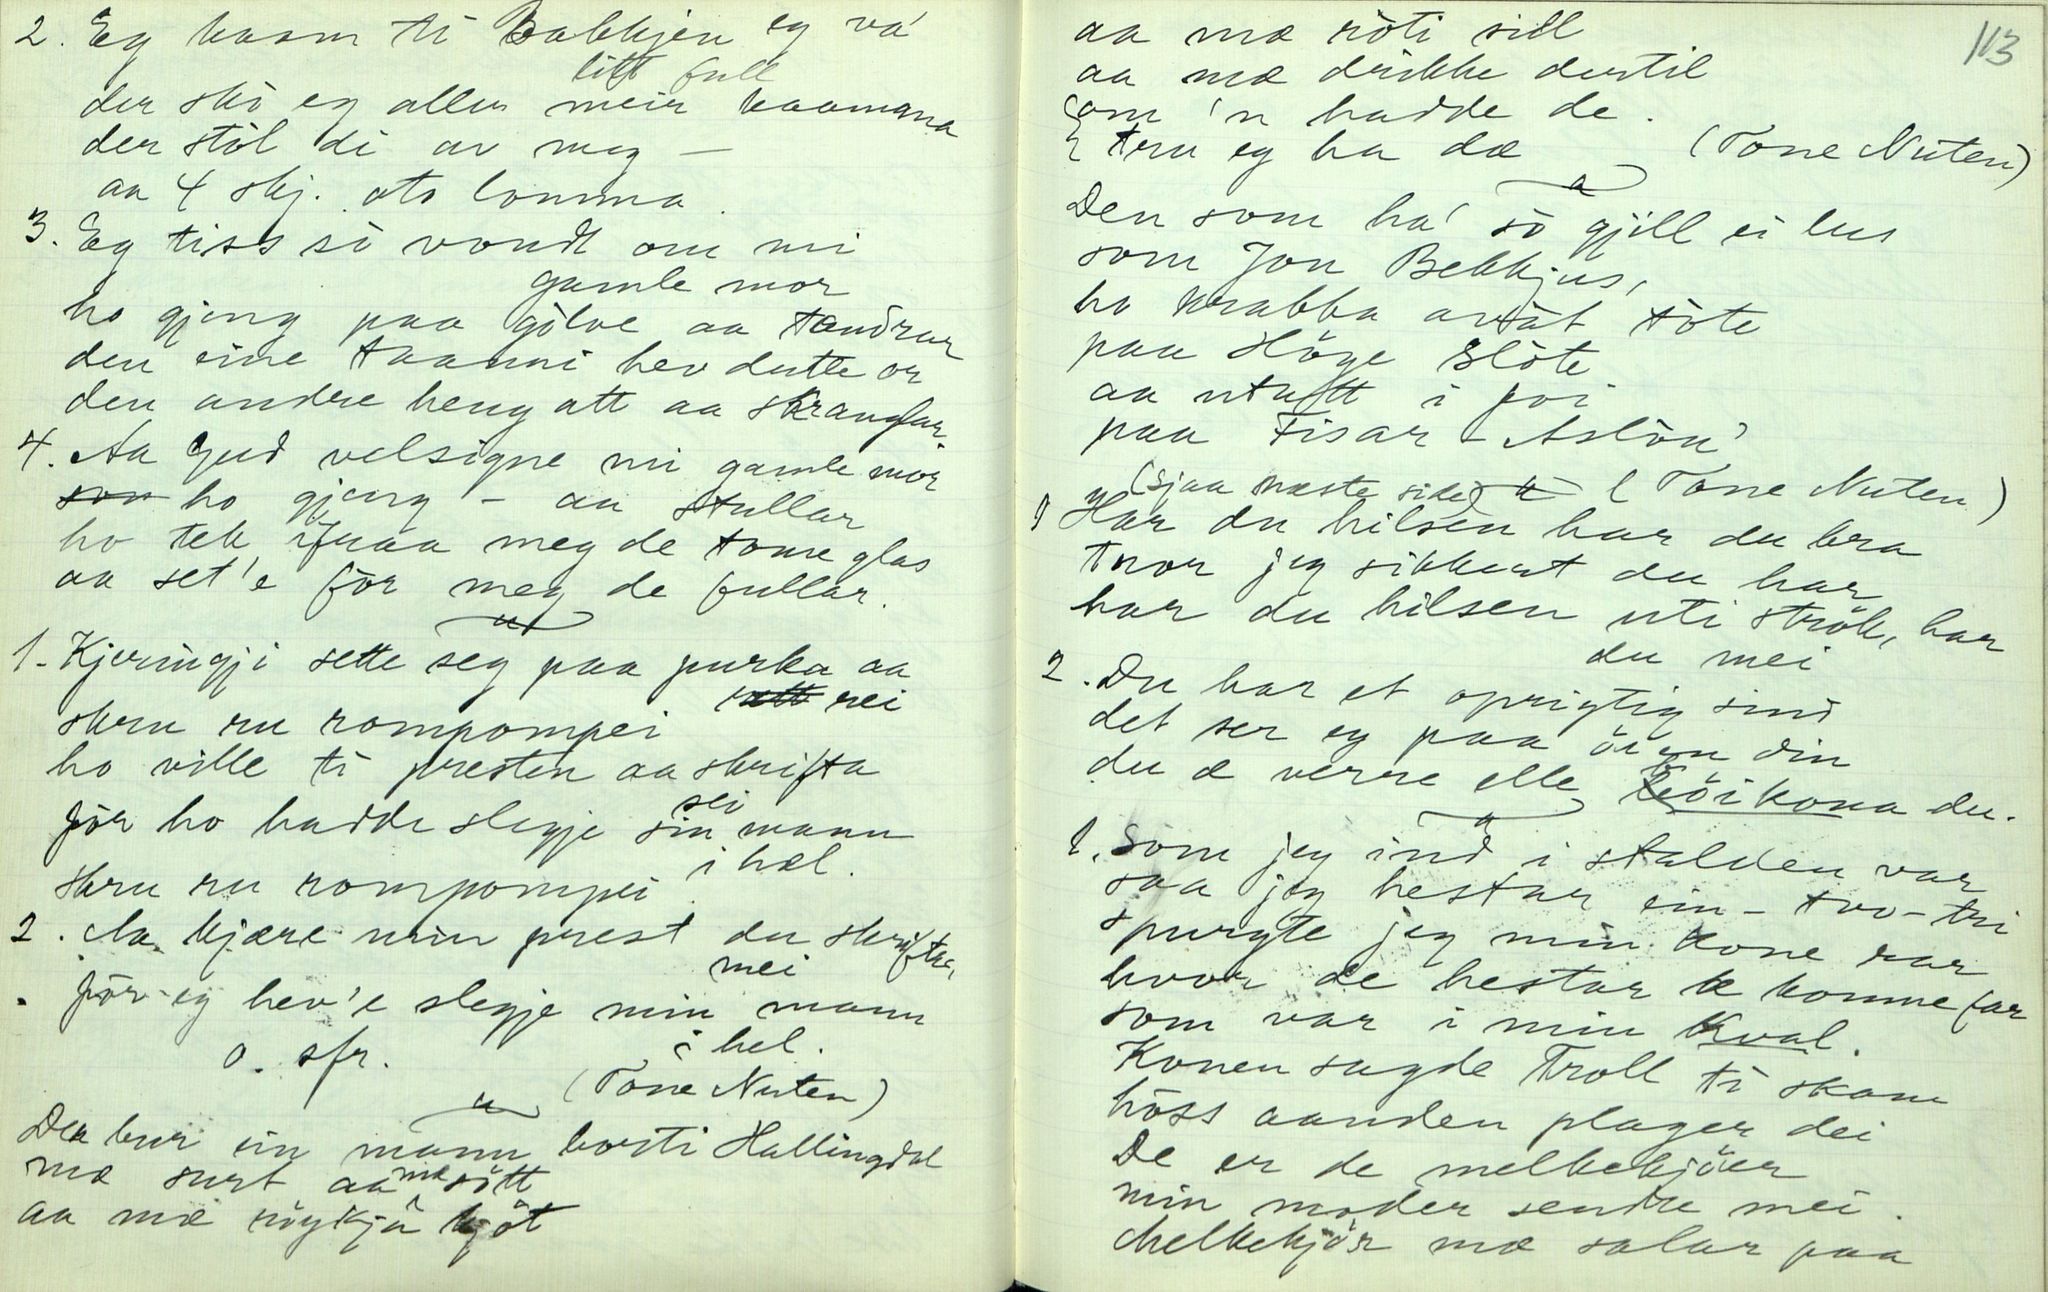 2. Eg kaam ti Bakkjen eg va'
litt full
der ski eg aller meir kaamma
der stòl di av meg —
aa 4 skj. ots lomma.
3. Eg tiss sò vondt om mi
gamle mor
ho gjeng paa gòlve aa tandrar
den eine taanni hev dutte or
den andre heng att aa skranglar.
4. Aa Gud velsigne mi gamle mor
som ho gjeng – aa stullar
ho tek ifraa meg de tome glas
aa set'e för meg de fullar.
1. Kjeringji sette seg paa purka aa
ratt rei
skru ru rompompei
ho ville ti presten aa skrifta
för ho hadde slegje sin sei mann
i hæl.
skru ru rompompei.
2. Aa kjære min prest du skrifta,
mei
för eg hev'e slegje min mann
i hel.
o. sfr.
(Tone Nuten)
Der bur ein mann borti Hallingdal
mæ surt aa mæ sött
aa mæ röykjå kjöt
113
aa mæ ròti sill
aa mæ drikke dertil
som 'n hadde de.
E tru eg ha dæ
(Tone Nuten)
Den som ha' sò gjill ei lus
som Jon Bekkjus,
ho krabba art tòte
paa Höge Slòte
aa utatt i poi
paa Fisar-Aslòu'
(Sjaa næste side) (Tone Nuten)
1 Har du hilsen har du bra
tror jeg sikkert du har
har du hilsen uti strök, har
du mei
2. Du har et oprigtig sind
det ser eg paa ögen din
du æ verre elle du.
1. Som jeg ind i stalden var
saa jeg hestar ein – tvo – tri
spurgte jeg min kone rar
hvor de hestar æ komme far
som var i min kval.
Konen sagde Troll ti skam
höss aanden plager dei
De er de melkekjöer
min moder sendte mei.
Melkekjör mæ salar paa